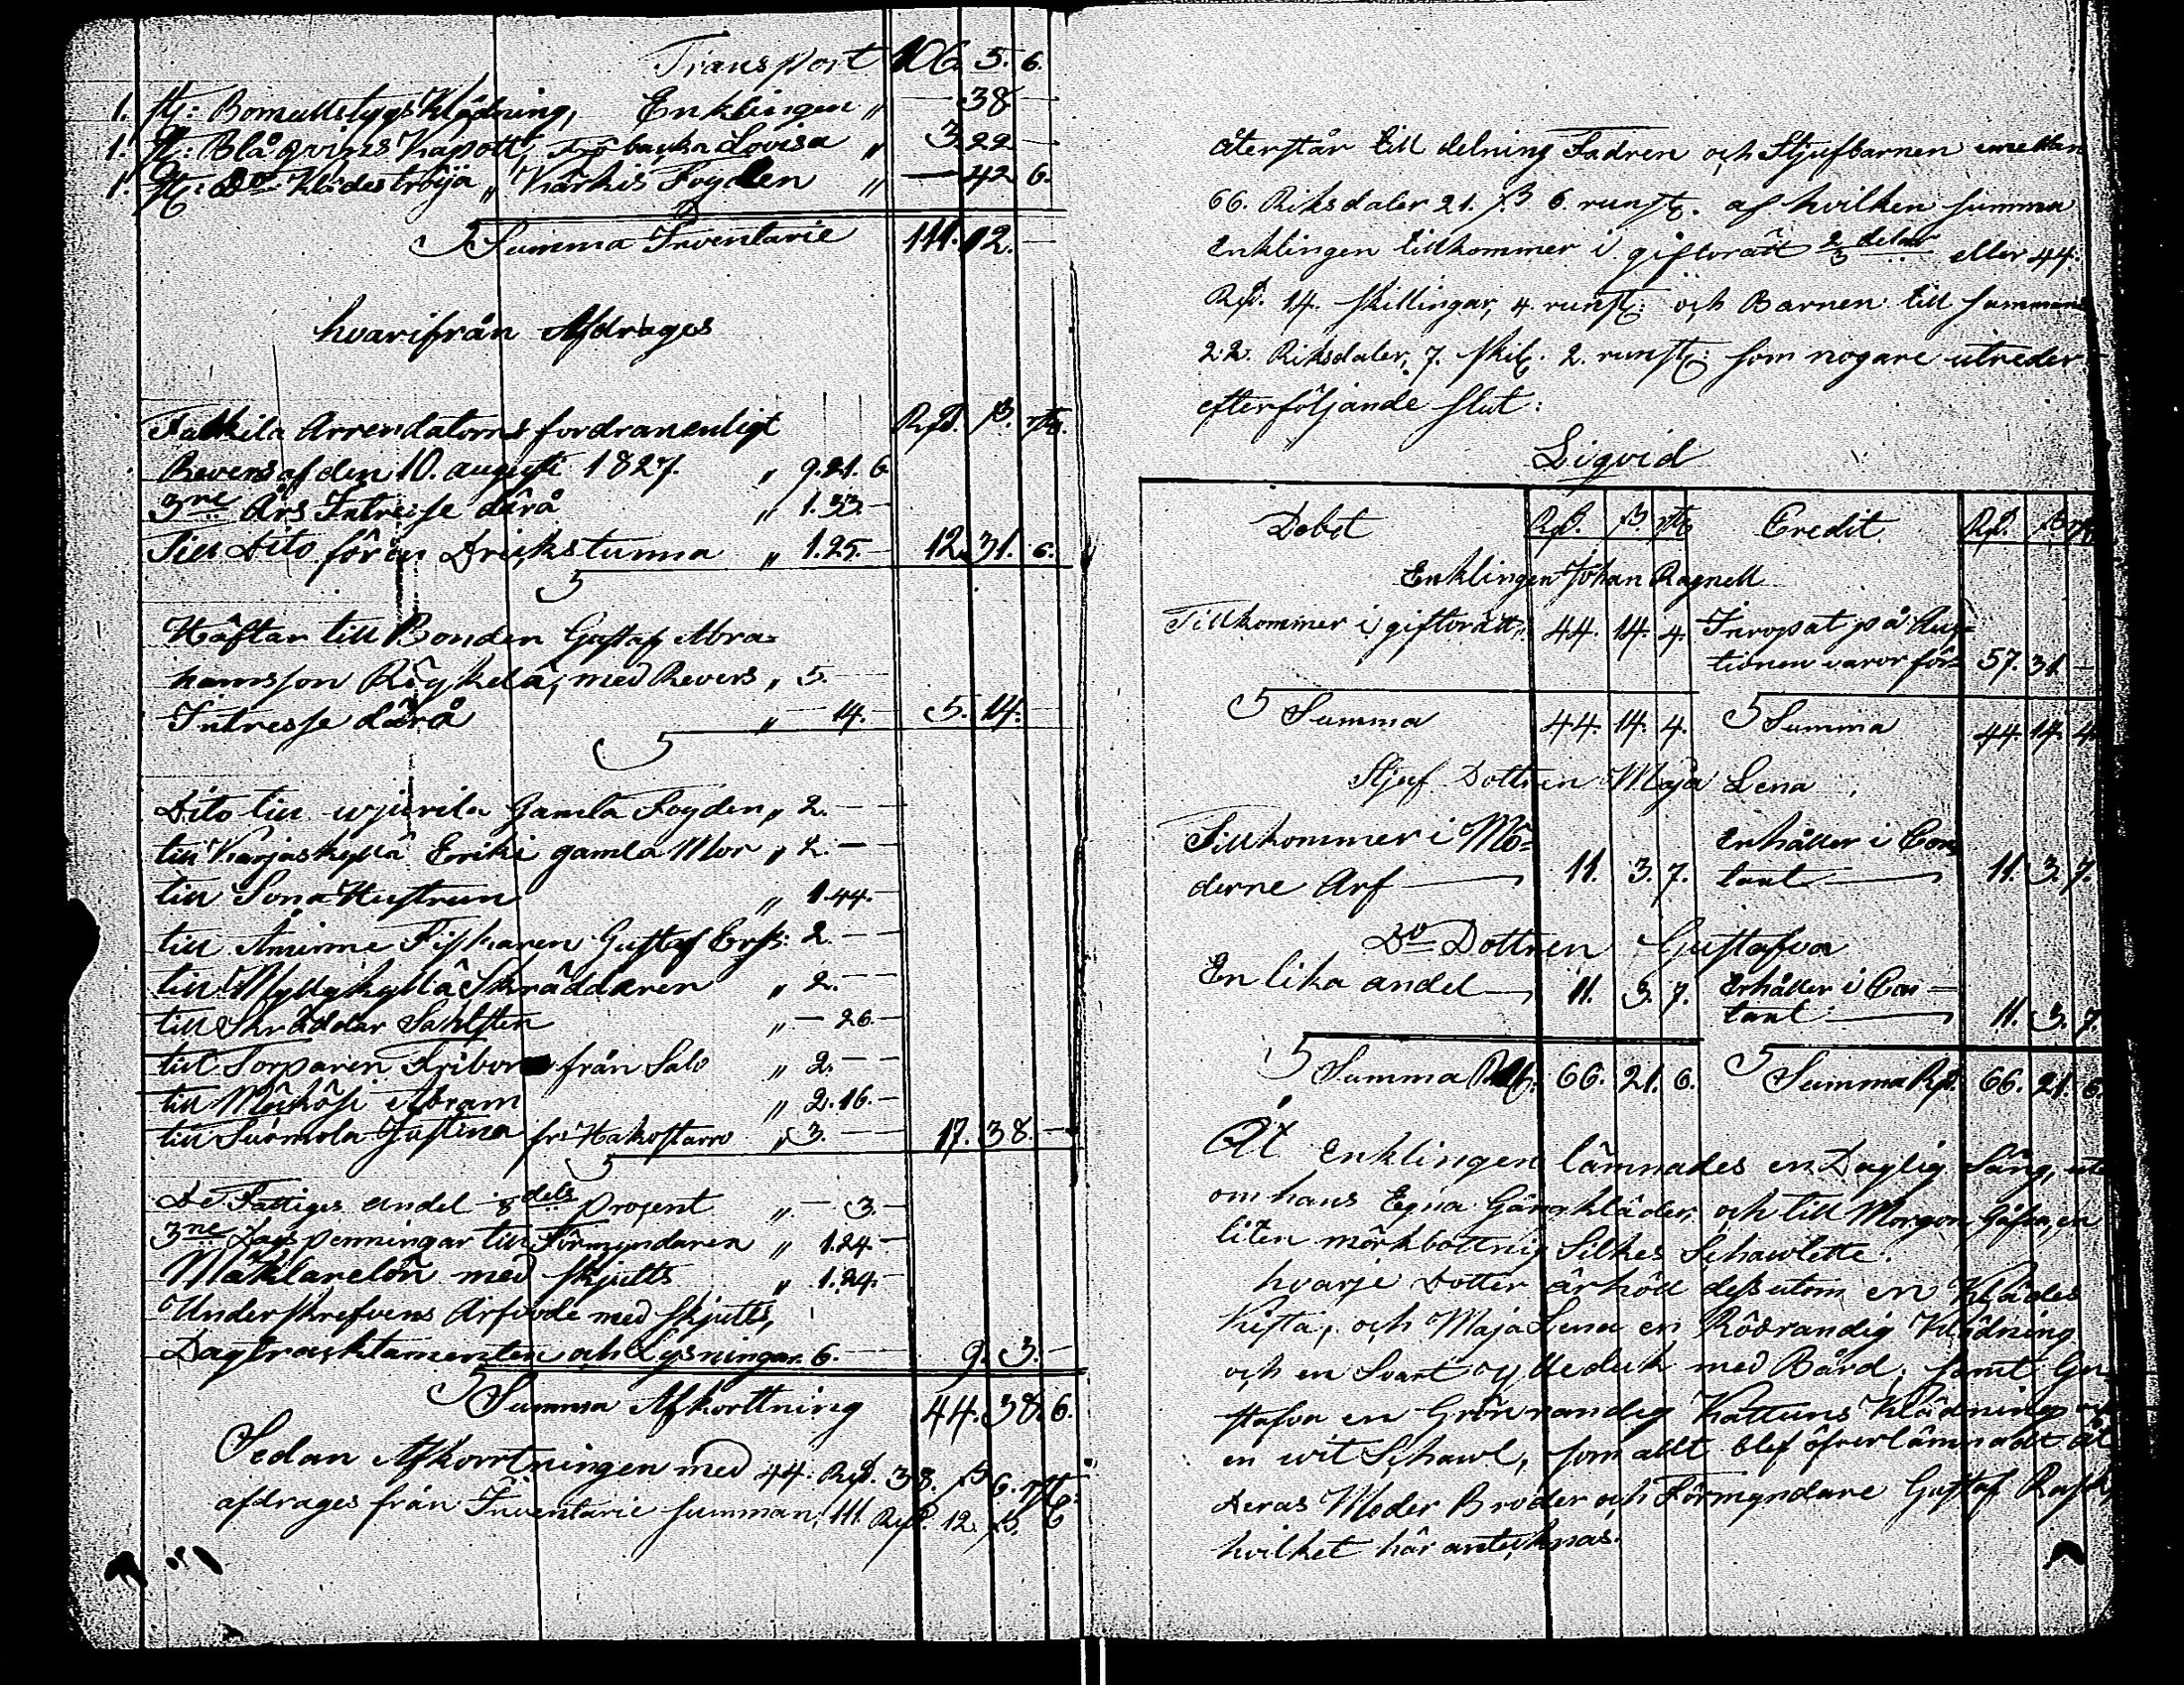 Transport 106. 5. 6.
1. st: Bomullstygs Klädning, Enklingen „ — 38 —
1. st: Blågvins Kapott, Lovisa „ 3. 22 —
1. st: Do Klädeströja „ Karkis Fogden „ — 42 6.
Summa Inventarie 111. 12. —
hvarifrån Afdrages
Rd. ß. rst.
Arrendatorns fordran enligt
Revers af den 10. augusti 1827. „ 9. 21. 6
3ne Års Intresse därå „ 1. 33. —
Dito för en Drickstunna „ 1. 25. — 12. 31. 6.
Häftar till Bonden Gustaf Abra-
hamsson med Revers „ 5. —
Intresse därå „ — 14. — 5. 14. —
Dito till Gamla Fogden „ 2. — —
till Karjaskylä Erikis gamla Mor „ 2. —
till Sona Hustrun „ 1. 44. —
till Åminne Fiskaren Gustaf Ers: 2. — —
till Myllykylä Skräddaren „ 2. — —
till Skräddar Sahlsten „ — 26. —
till Torparen från Salo „ 2. — —
till Abram „ 2. 16. —
till Justina fr: „ 3. — — 17. 38. —
De Fattiges andel 8dels procent „ — 3. —
3ne Dags penningar till Förmyndaren „ 1. 24 —
Mäklarelön med skjutts „ 1. 24. —
Underskrefvens Arfvode med skjutts,
Dagtracktamenten och Lysningar. 6. — — 9. 3. —
Summa Afkorttning 44. 38. 6.
Sedan Afkorrtningen med 44. Rd. 38. ß 6. rst:
afdrages från Inventarie summan, 111. Rd. 12. ß.
återstår till delning Fadren och Stjufbarnen emellan
66. Riksdaler 21. ß 6. runst. af hvilken summa
Enklingen tillkommer i giftorätt 2/3 delar eller 44.
Rd. 14. skillingar, 4. runst: och Barnen till samman
22. Riksdaler, 7. skil. 2. runst: som nogare utreder
efterföljande slut:
Liqvid
Debet Rd. ß. rst Credit Rd. ß rst
Enklingen Johan Ragnell
Tillkommer i giftorätt „ 44. 14. 4. Inropat på Auk-
tionen varor för 57. 31 —
Summa 44. 14. 4. Summa 44. 14. 4
Stjuf Dottren Maja Lena
Tillkommer i Mö- Erhåller i Con-
derne Arf — 11. 3. 7. tant — 11. 3. 7.
Do Dottren Gustafva
En lika andel — 11. 3. 7. Erhåller i Con-
tant — 11. 3. 7.
Summa Rd. 66. 21. 6. Summa Rd. 66. 21. 6.
Åt Enklingen lämnades en Daglig Säng, ut-
om hans Egna Gångkläder, och till Morgon Gåfva, en
liten mörkbottnig Silkes Schawlette.
hvarje Dotter ärhöll dessutom en Klädes
Kista, och Maja Lena en Rödrandig Klädning
och en Svart med Bård, samt Gu-
stafva en Grönrandig Kattuns Klädning och
en wit Schawl, som allt blef öfverlämnadt åt
Deras Moder Broder och Förmyndare Gustaf
hvilket här antecknas.